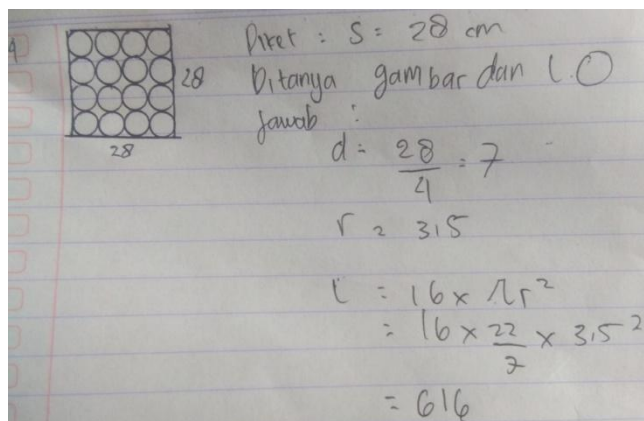 4
28
28
Diket : S = 28 cm
Ditanya gambar dan L.O
Jawab :
d = 28/4 = 7
r = 3,5
L = 16 x πr²
= 16 x 22/7 x 3,5²
= 616